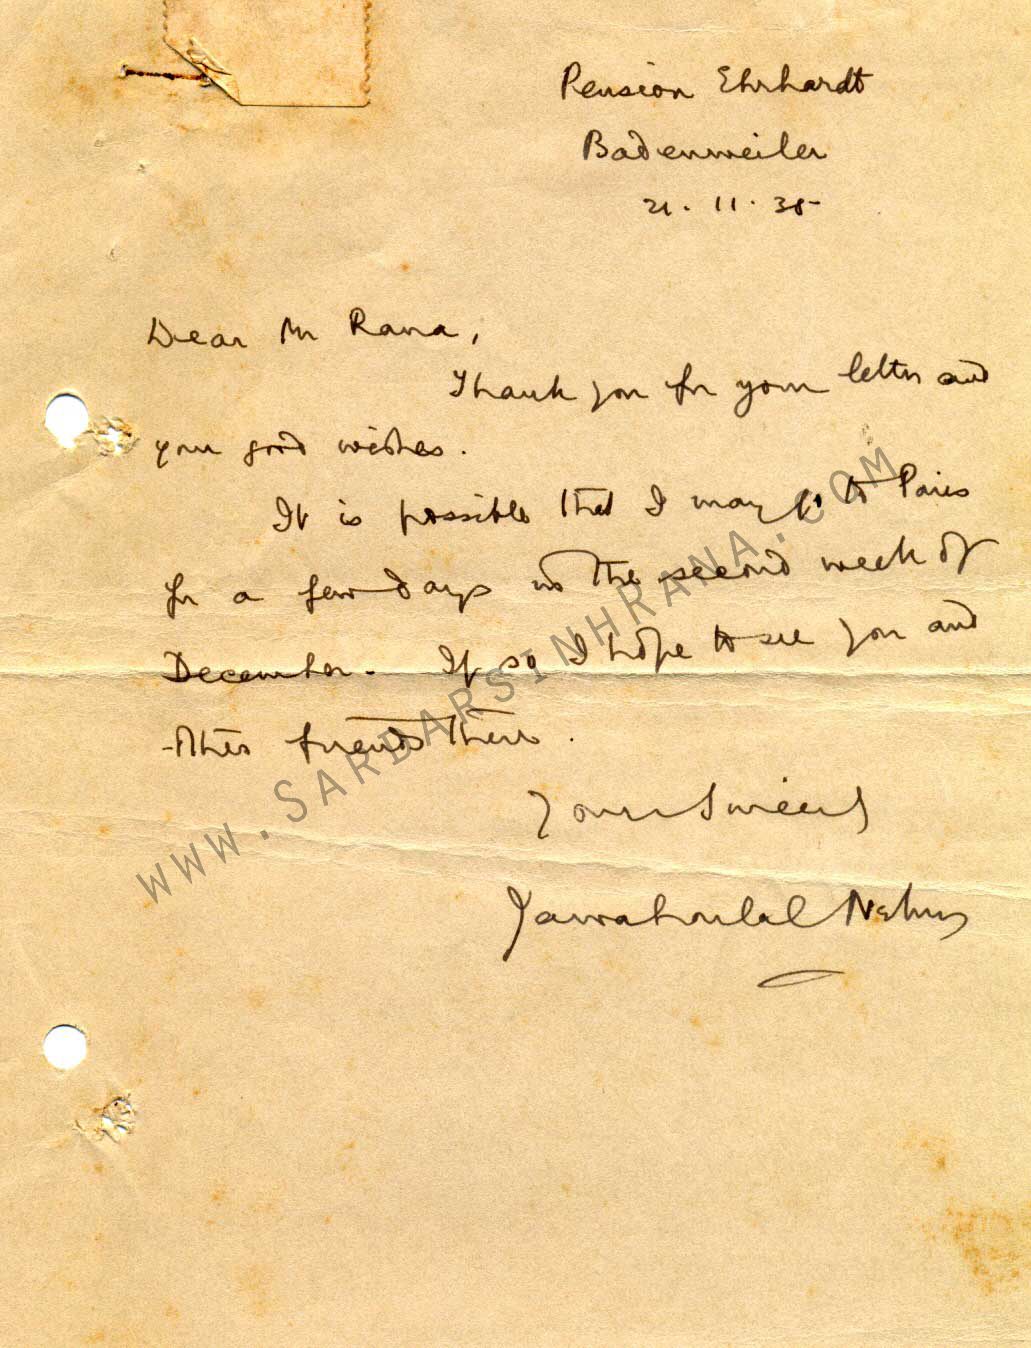 Pension Ehrhardt
Badenweiler
21. 11. 35
Dear Mr Rana,
Thank you for your letter and
your good wishes.
It is possible that I may go to Paris
for a few days in the second week of
December. If so I hope to see you and
other friends there.
Yours sincerely
Jawaharlal Nehru
WWW.SARDARSINHRANA.COM